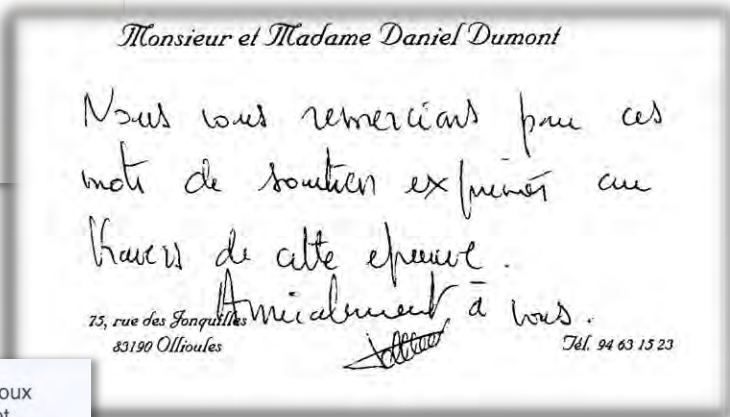 Monsieur et Madame Daniel Dumont
Nous vous remercions pour ces
mots de soutien exprimés au
travers de cette epreuve.
Amicalement à vous.
75, rue des Jonquilles
83190 Ollioules
Tél. 94 63 15 23
oux